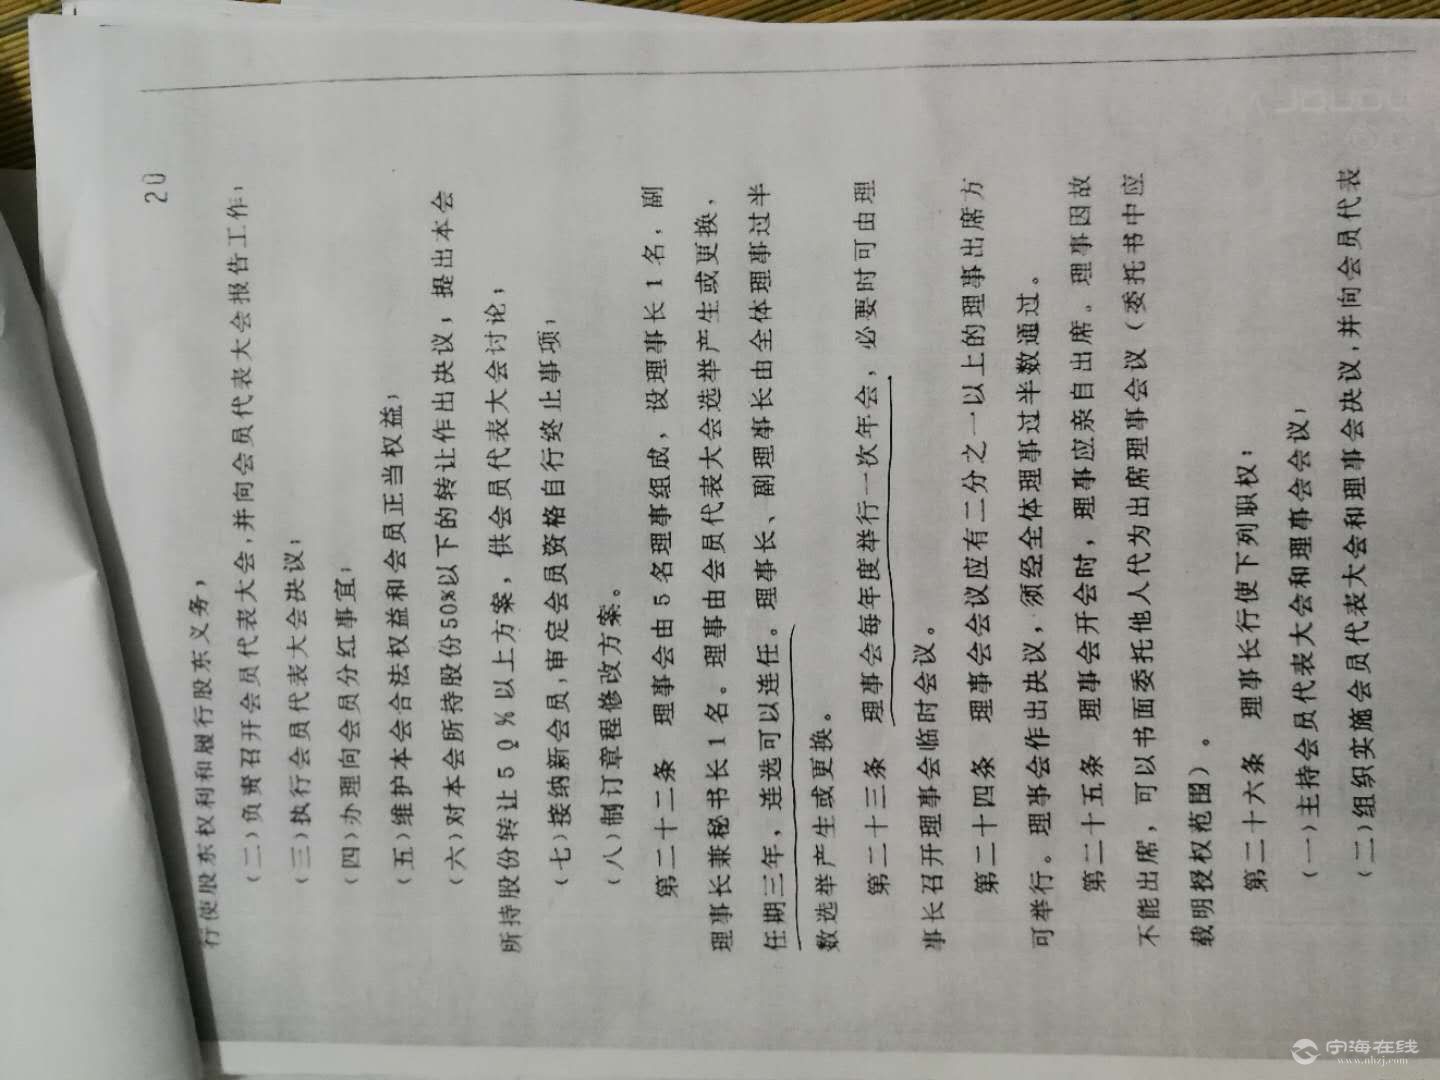 20
行使股东权利和履行股东义务，
（二）负责召开会员代表大会，并向会员代表大会报告工作；
（三）执行会员代表大会决议；
（四）办理向会员分红事宜；
（五）维护本会合法权益和会员正当权益；
（六）对本会所持股份50%以下的转让作出决议，提出本会
所持股份转让50%以上方案，供会员代表大会讨论；
（七）接纳新会员，审定会员资格自行终止事项；
（八）制订章程修改方案。
第二十二条 理事会由5名理事组成，设理事长1名，副
理事长兼秘书长1名。理事由会员代表大会选举产生或更换，
任期三年，连选可以连任。理事长、副理事长由全体理事过半
数选举产生或更换。
第二十三条 理事会每年度举行一次年会，必要时可由理
事长召开理事会临时会议。
第二十四条 理事会会议应有二分之一以上的理事出席方
可举行。理事会作出决议，须经全体理事过半数通过。
第二十五条 理事会开会时，理事应亲自出席。理事因故
不能出席，可以书面委托他人代为出席理事会议（委托书中应
载明授权范围）。
第二十六条 理事长行使下列职权；
（一）主持会员代表大会和理事会会议；
（二）组织实施会员代表大会和理事会决议，并向会员代表
宁海在线
www.nhzj.com